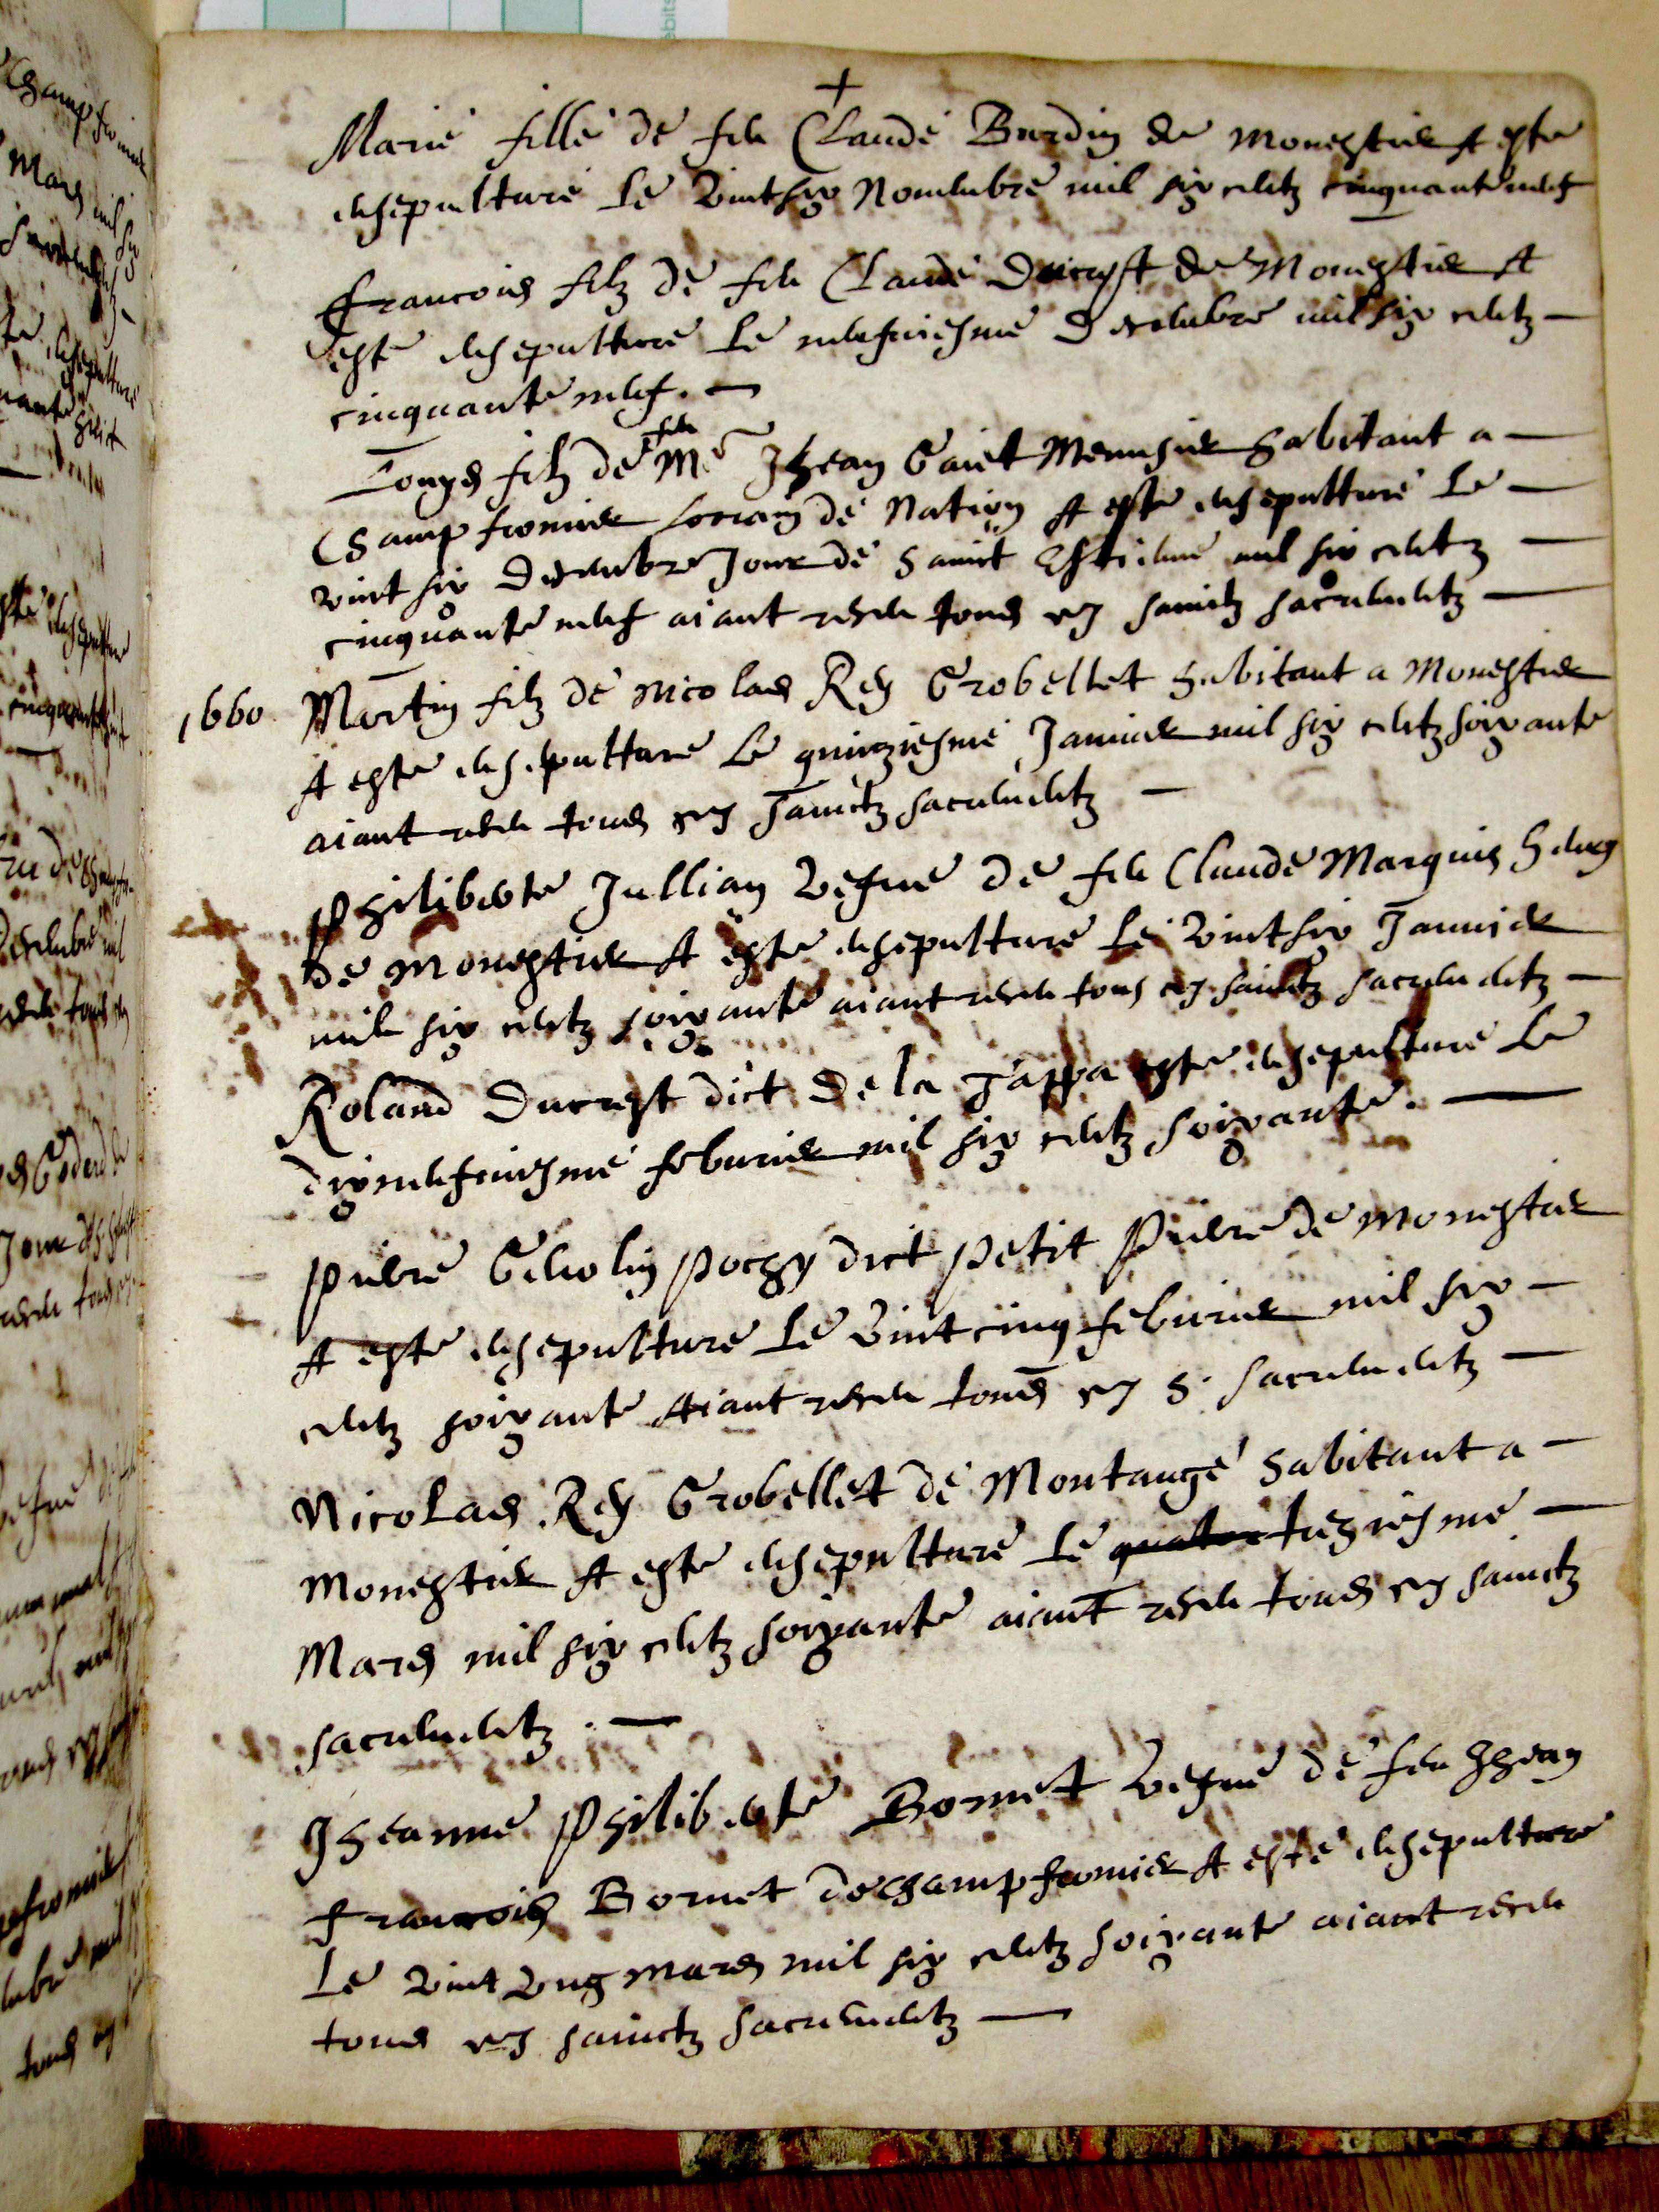 +
Marie fille de feu Claude Burdin de Monestier A este
ensepulture le vint six Nouembre mil six centz cinquante neuf
Francois filz de feu Claude Ducrest de Monestier A
este ensepulture le neufuiesme Decembre mil six centz
cinquante neuf.
Louys filz de feu Me Jhean Gaiet Menusier habitant a
Champfromier Lorrain de Nation A este ensepulture le
vint six Decembre Jour de Sainct Estienne mil six centz
cinquante neuf aiant receu tous ces sainctz sacrementz
1660 Martin filz de Nicolas Rey Grobellet habitant a Monestier
A este ensepulture le quinziesme Januier mil six centz soixante
aiant receu tous ces sainctz sacrementz
Philiberte Jullian vefue de feu Claude Marquis
de Monestier A este ensepulture le vint six Januier
mil six centz soixante aiant receu tous ces sainctz sacrementz
Roland Ducrest dict De la este ensepulture le
dixneufuiesme feburier mil six centz soixante.
Pierre Genolin Pochy dict Petit Pierre de Monestier
A este ensepulture le vint cinq feburier mil six
centz soixante Aiant receu tous ces S. sacrementz
Nicolas Rey Grobellet de Montange habitant a
Monestier A este ensepulture le quator treziesme
Mars mil six centz soixante aiant receu tous ces sainctz
sacrementz.
Jheanne Philiberte Bornet vefue de feu Jhean
Francois Bornet de Champfromier A este ensepulture
Le vint vng mars mil six centz soixante aiant receu
tous ces sainctz sacrementz